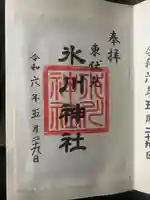 奉拝
東伏見
氷川神社
令和六年五月二十九日